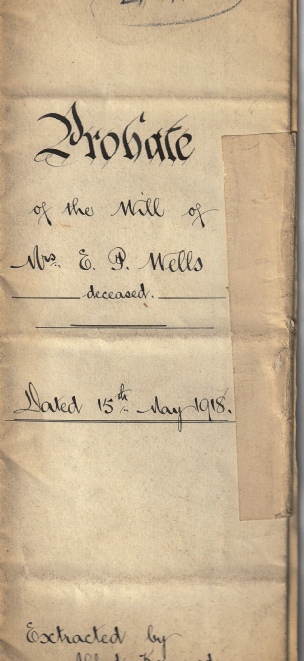 Probate
of the Will of
Mrs. E. P. Wells
deceased.
Dated 15th May 1918.
Extracted by